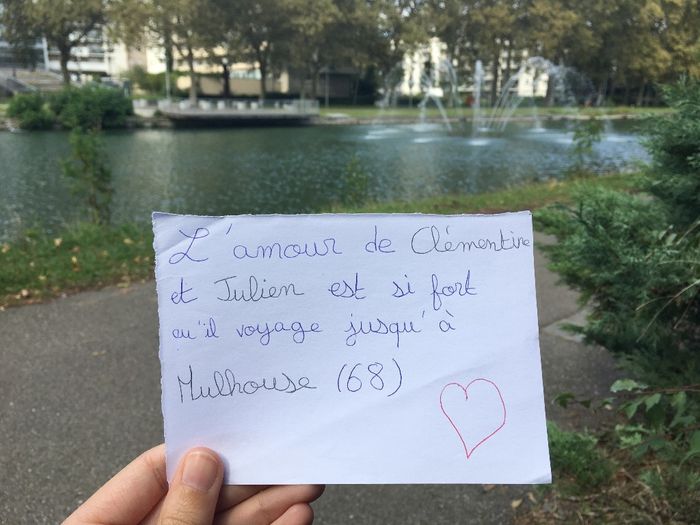 L'amour de Clémentine
et Julien est si fort
qu'il voyage jusqu'à
Mulhouse (68)